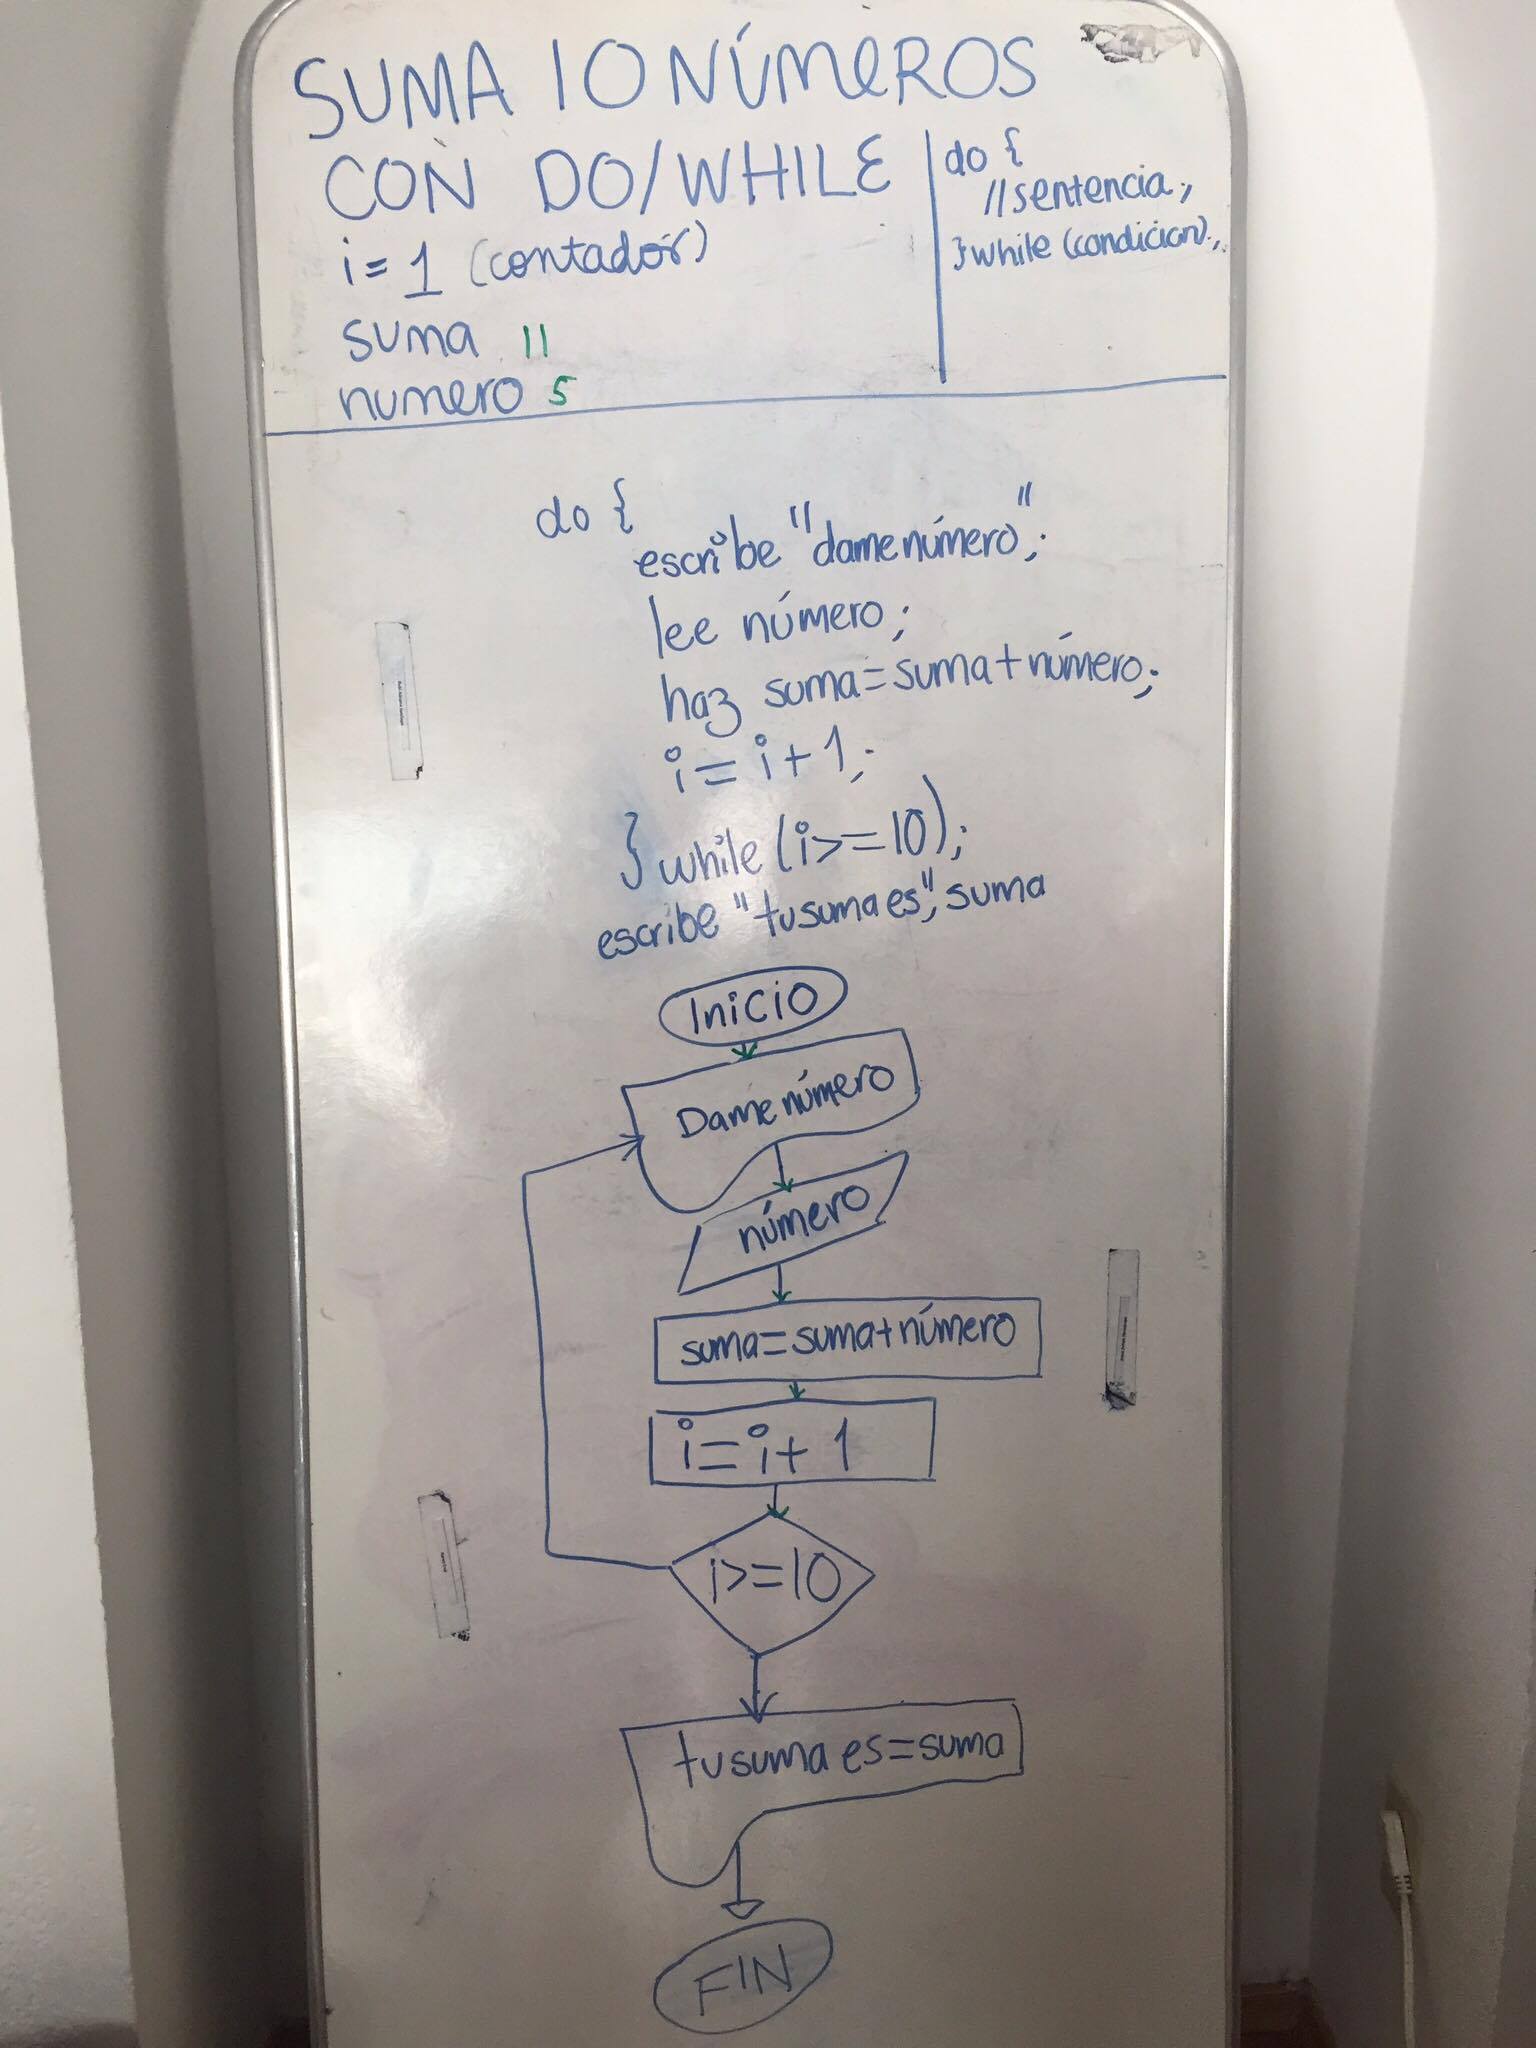 SUMA 10 NÚMEROS
CON DO/WHILE
i = 1 (contador)
suma 11
numero 5
do {
//sentencia;
} while (condicion);
do {
escribe "dame número";
lee número;
haz suma=suma+número;
i = i + 1;
} while (i>=10);
escribe "tu suma es", suma
Inicio
Dame número
número
suma=suma+número
i=i+1
i>=10
tu suma es=suma
FIN